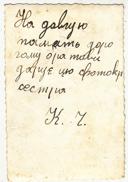 На довгую
память доро
гому братові
дарує цю фотокр
сестра
К. Ч.